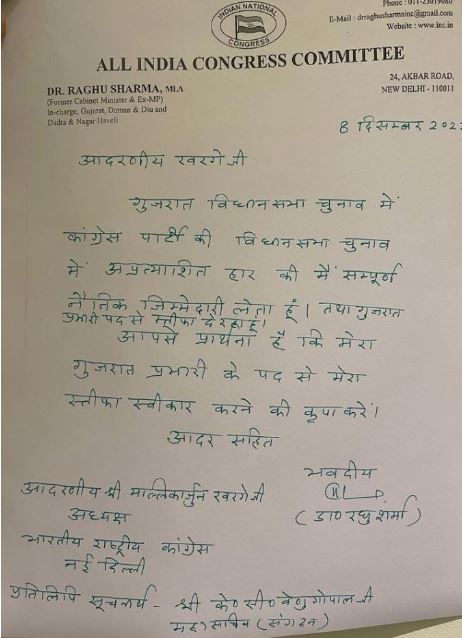 Phone : 011-23019080
INDIAN NATIONAL
CONGRESS
E-Mail : drraghusharmainc@gmail.com
Website : www.inc.in
ALL INDIA CONGRESS COMMITTEE
DR. RAGHU SHARMA, MLA
(Former Cabinet Minister & Ex-MP)
In-charge, Gujarat, Daman & Diu and
Dadra & Nagar Haveli
24, AKBAR ROAD,
NEW DELHI - 110011
8 दिसम्बर 202
आदरणीय खरगे जी
गुजरात विधानसभा चुनाव में
कांग्रेस पार्टी की विधानसभा चुनाव
में अप्रत्याशित हार की मैं सम्पूर्ण
नैतिक जिम्मेदारी लेता हूं। तथा गुजरात
प्रभारी पद से स्तीफा दे रहा हूं।
आपसे प्रार्थना है कि मेरा
गुजरात प्रभारी के पद से मेरा
स्तीफा स्वीकार करने की कृपा करें।
आदर सहित
भवदीय
(डा० रघु शर्मा)
आदरणीय श्री मल्लिकार्जुन खरगे जी
अध्यक्ष
भारतीय राष्ट्रीय कांग्रेस
नई दिल्ली
प्रतिलिपि सूचनार्थ - श्री के० सी० वेणुगोपाल जी
महासचिव (संगठन)